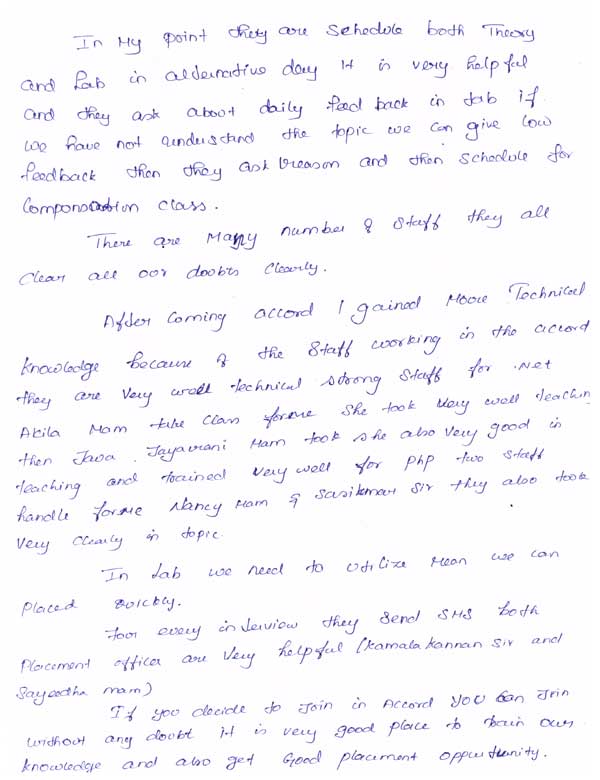 In My point they are schedule both Theory
and Lab in alternative day it is very helpful
and they ask about daily feed back in lab if
we have not understand the topic we can give low
feedback then they ask reason and then schedule for
compensation class.
There are Many number of staff they all
clear all our doubts clearly.
After coming accord I gained More Technical
knowledge because of the staff working in the accord
they are very well technical strong staff for .Net
Akila Mam take class forme she took very well teaching
then Java Jayarani Mam took she also very good in
teaching and trained very well for PhP two staff
handle forme Nancy Mam & Sasikmar sir they also took
very clearly in topic.
In Lab we need to utilize Mean we can
Placed Quickly.
For every interview they send SMS both
Placement officer are very helpful (Kamala kannan sir and
Sayeedha mam)
If you decide to Join in Accord YOU Can Join
without any doubt it is very good place to train our
knowledge and also get Good placement opportunity.